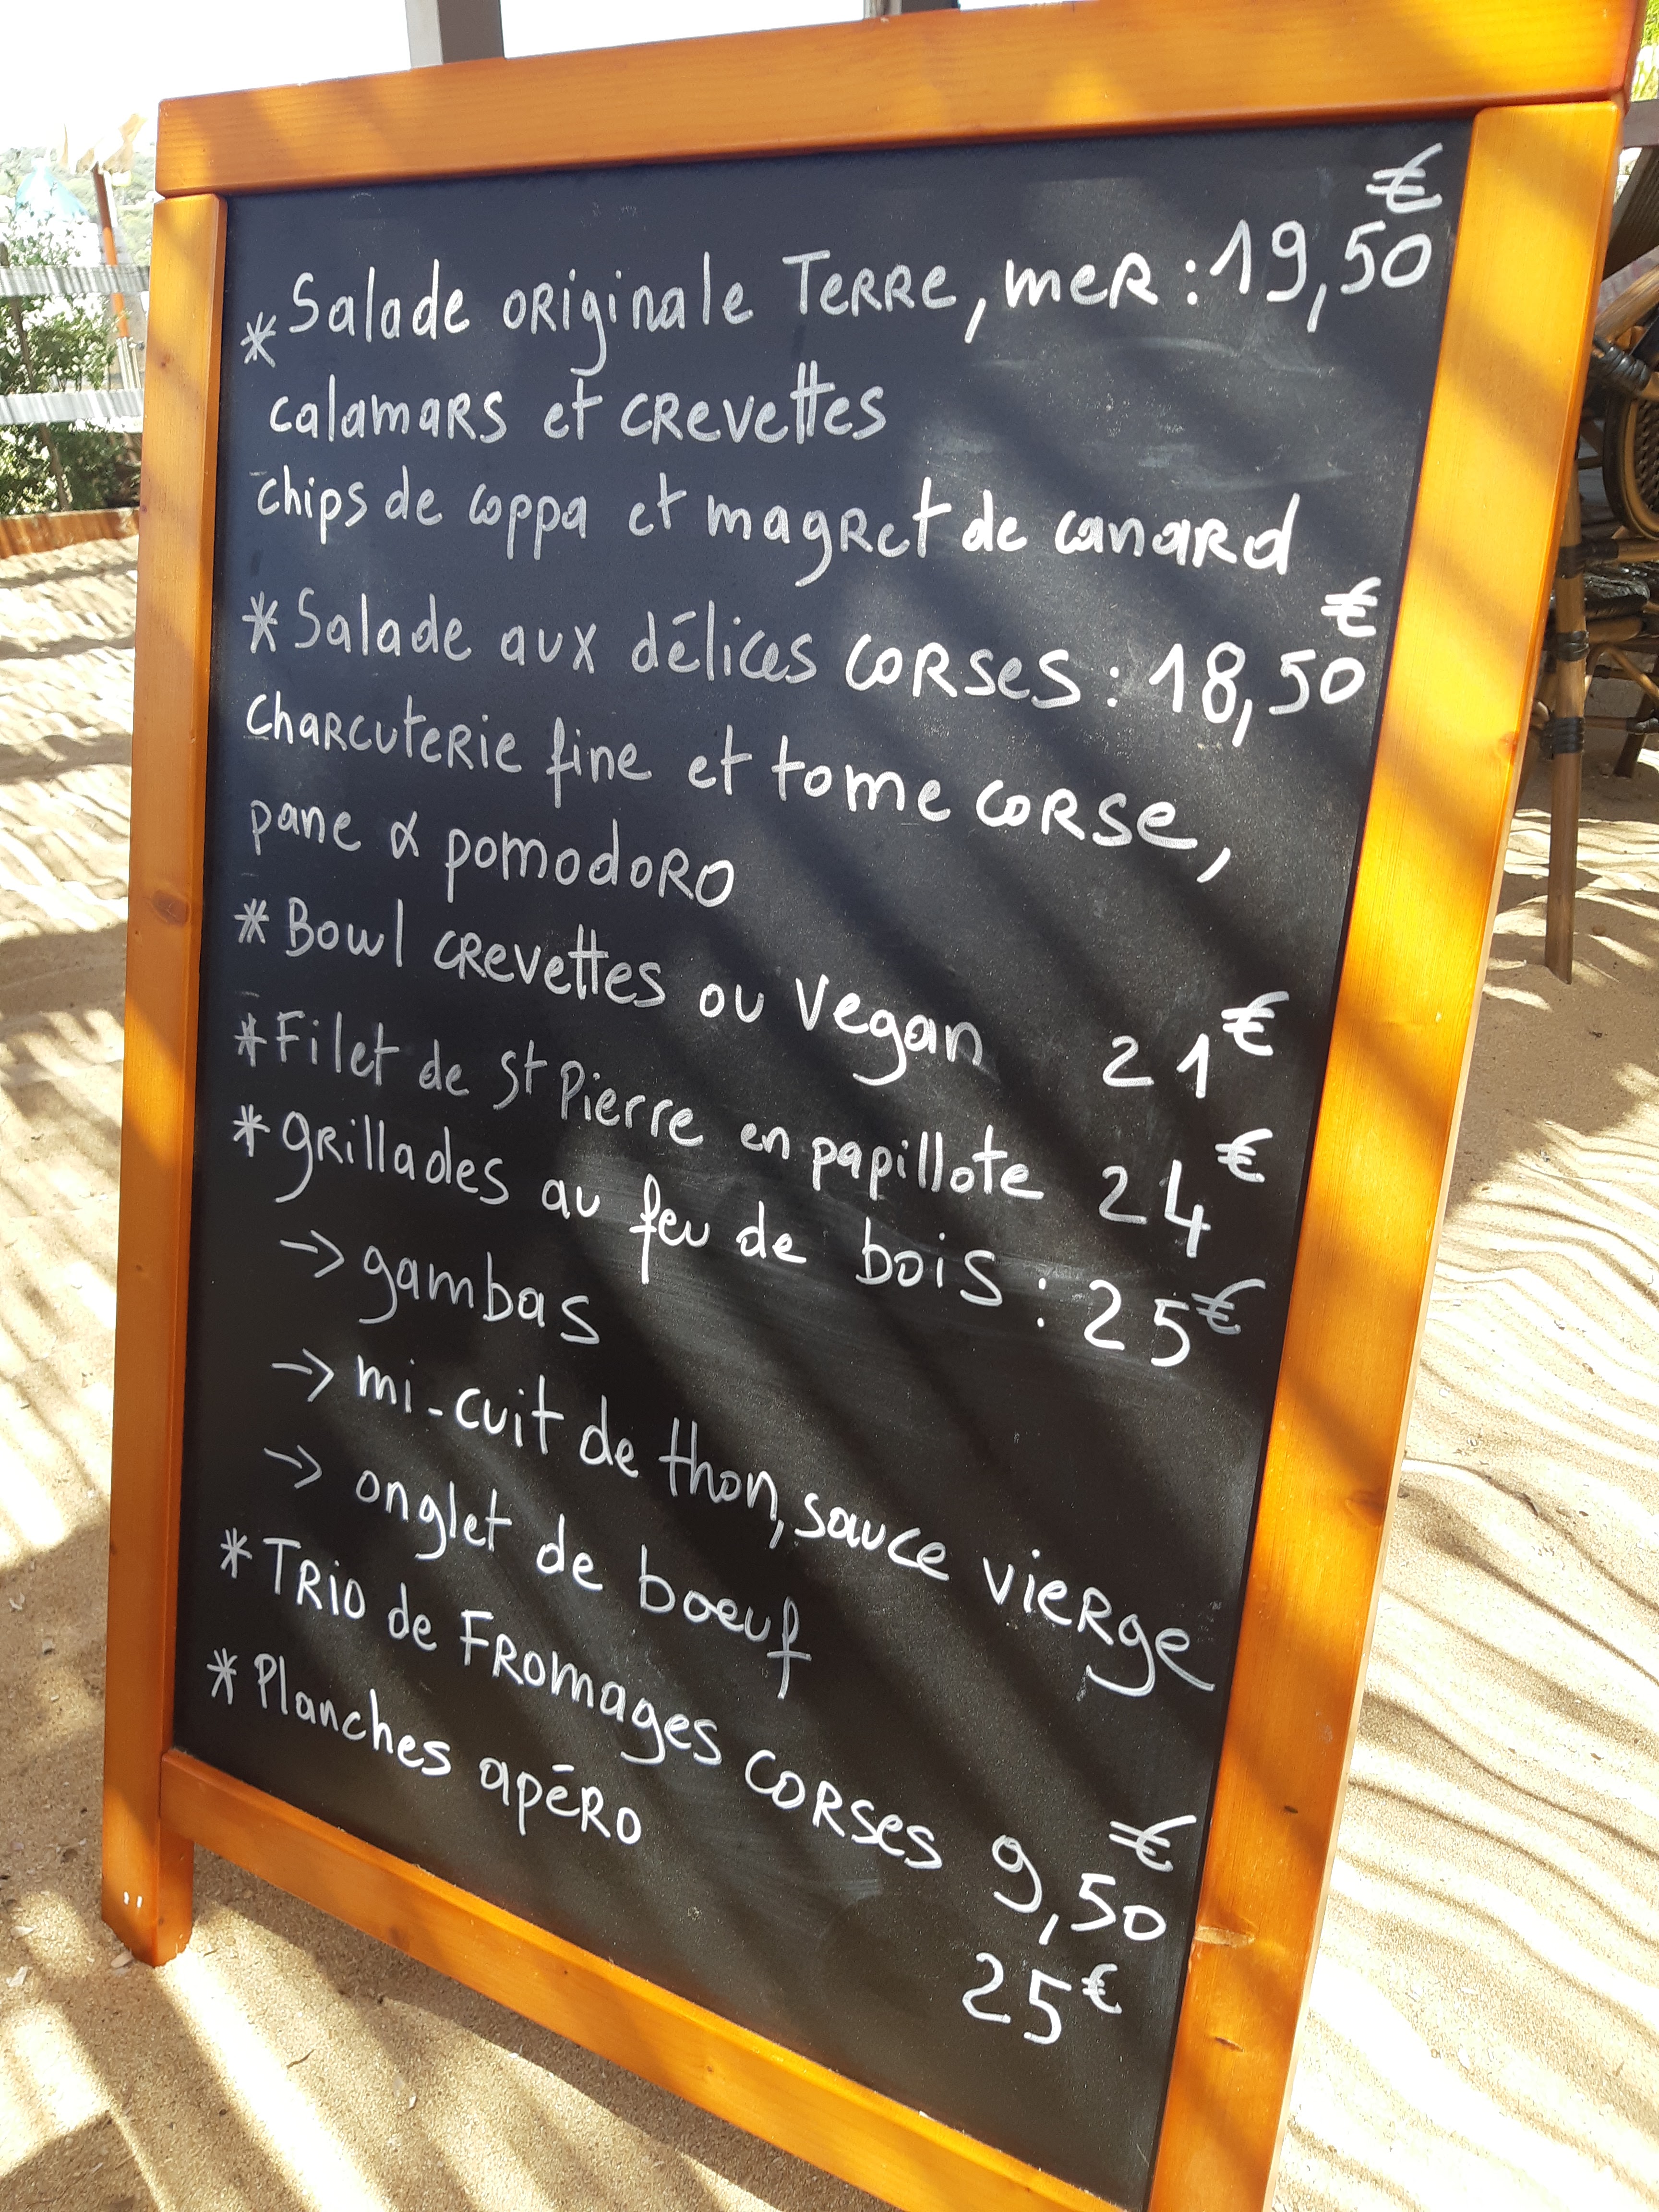 * Salade originale Terre, mer : 19,50 €
calamars et crevettes
chips de coppa et magret de canard
* Salade aux délices corses : 18,50 €
Charcuterie fine et tome corse,
pane & pomodoro
* Bowl crevettes ou Vegan 21 €
* Filet de St Pierre en papillote 24 €
* grillades au feu de bois : 25 €
-> gambas
-> mi-cuit de thon, sauce vierge
-> onglet de bœuf
* Trio de Fromages corses 9,50 €
* Planches apéro 25 €